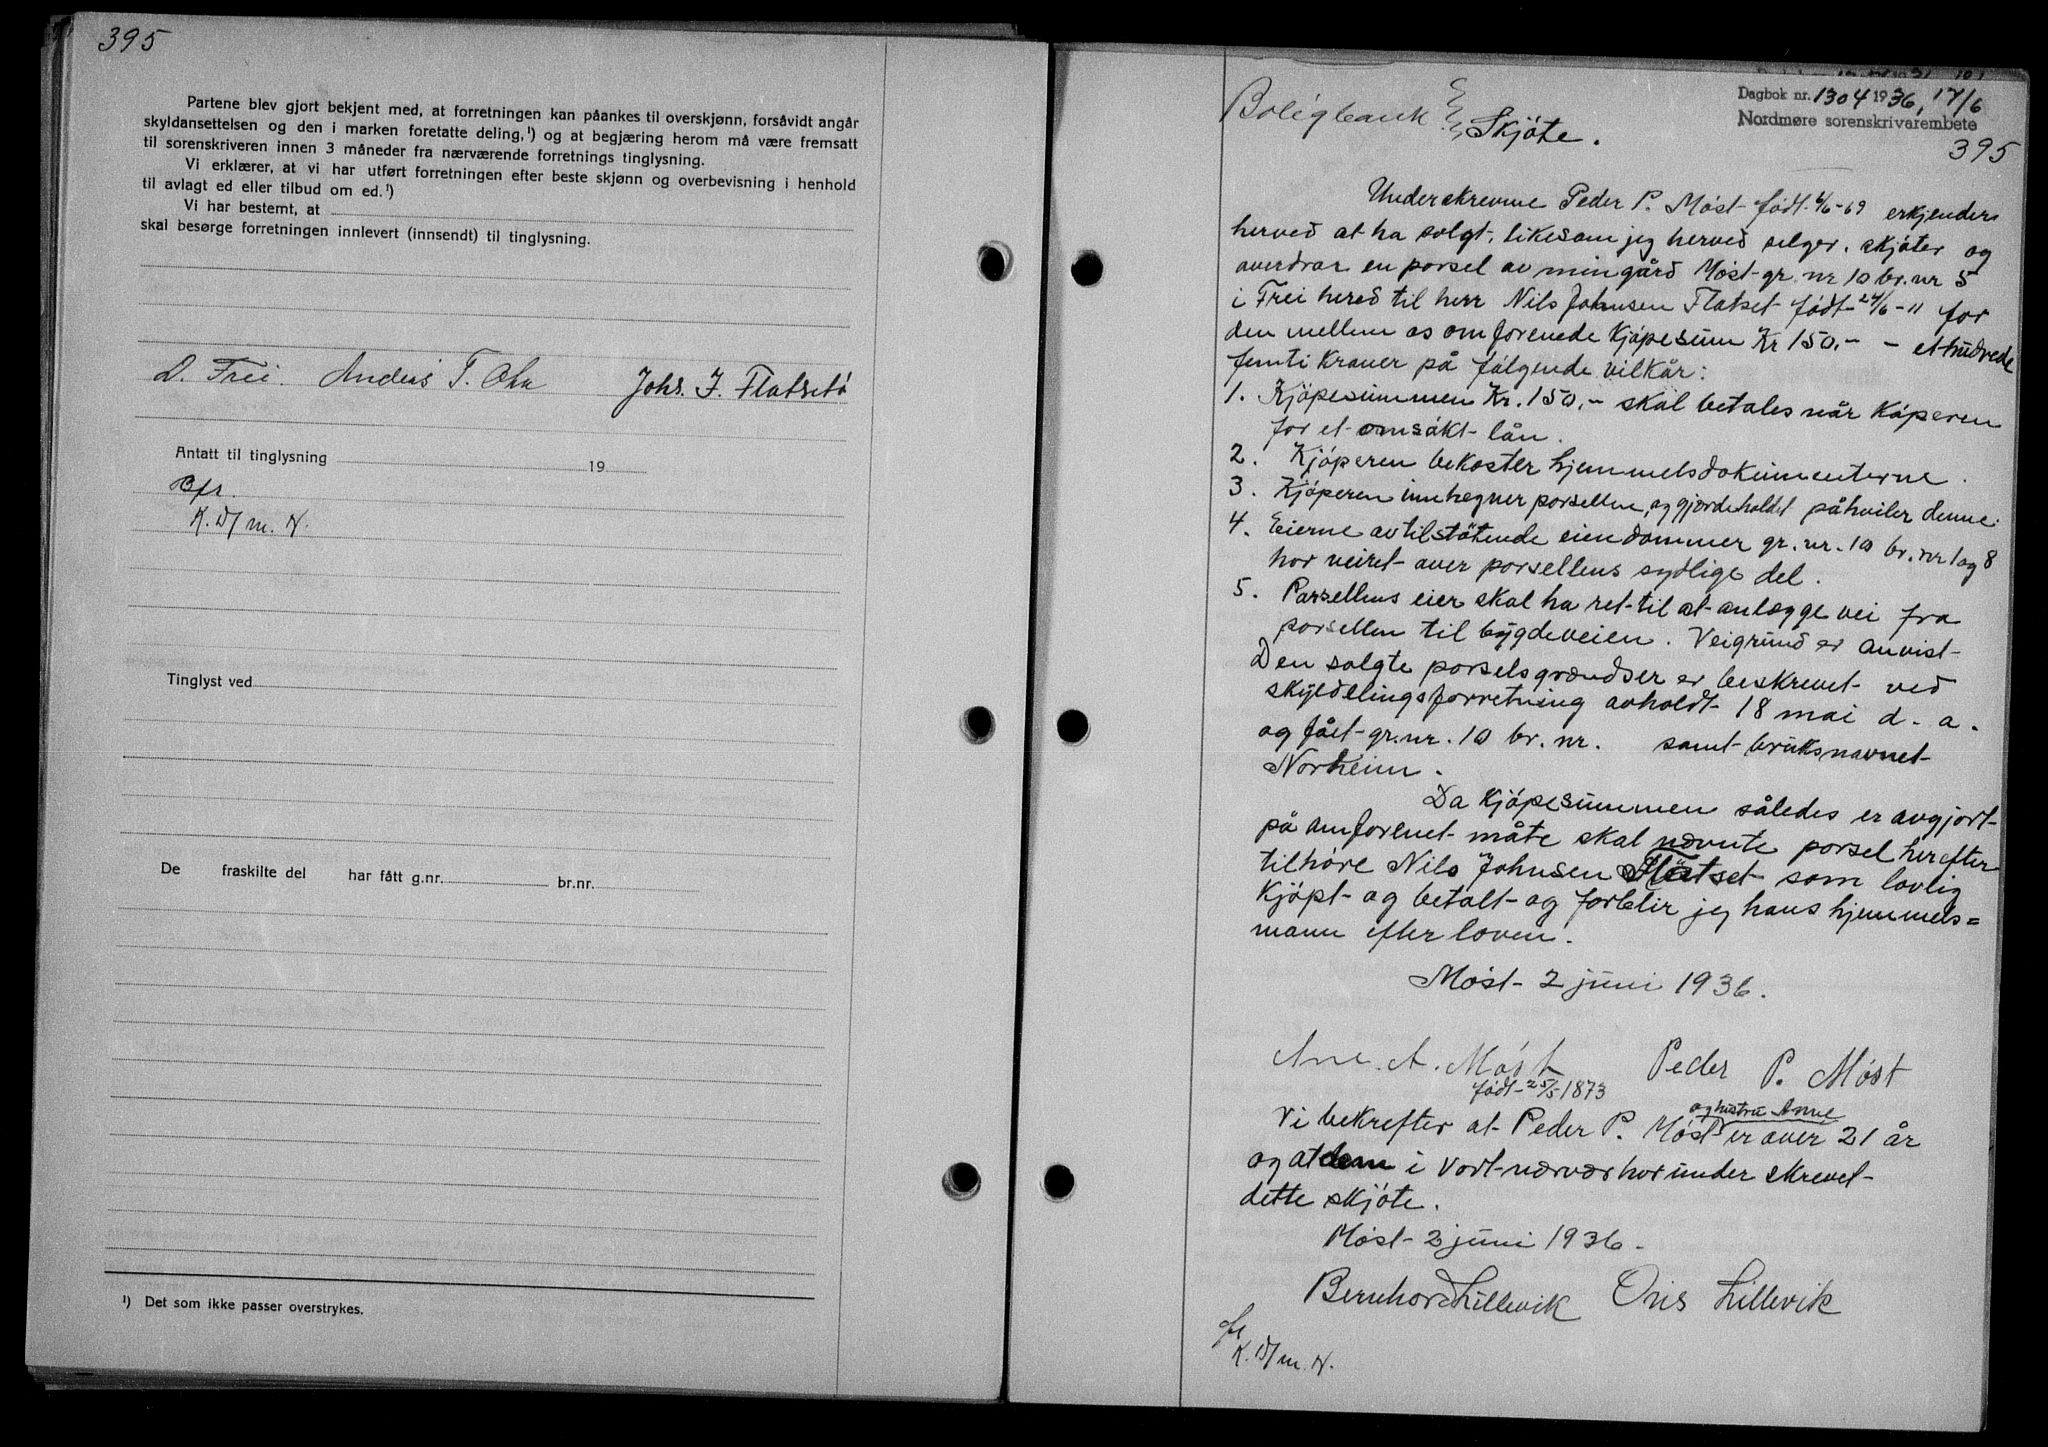 395
Partene blev gjort bekjent med, at forretningen kan påankes til overskjønn, forsåvidt angår
skyldansettelsen og den i marken foretatte deling,¹) og at begjæring herom må være fremsatt
til sorenskriveren innen 3 måneder fra nærværende forretnings tinglysning.
Vi erklærer, at vi har utført forretningen efter beste skjønn og overbevisning i henhold
til avlagt ed eller tilbud om ed.¹)
Vi har bestemt, at
skal besørge forretningen innlevert (innsendt) til tinglysning.
D. Frei. Anders T. Johs. J. Flatsetø
Antatt til tinglysning 19
Bfr.
K. D/ m. N.
Tinglyst ved
De fraskilte del har fått g.nr. br.nr.
¹) Det som ikke passer overstrykes.
Dagbok nr. 1304 1936, 17/6
Nordmøre sorenskrivarembete
395
Boligbank
Skjøte.
Underskrevne Peder P. Møst født 6/6-69 erkjender
herved at ha solgt, likesom jeg herved selger, skjøter og
overdrar en porsel av min gård Møst gr. nr 10 br. nr 5
i Frei hered til herr Nils Johnsen Flatset født 24/6-11 for
den mellem os omforenede Kjøpesum Kr 150,- - et hundrede
femti Kroner på følgende vilkår:
1. Kjøpesummen Kr. 150,- skal betales når Køperen
for et omsøkt lån.
2. Kjøperen bekoster hjemmelsdokumenterne.
3. Kjøperen innhegner porsellen, og gjordeholdet påhviler denne.
4. Eierne av tilstøtende eiendommer gr. nr. 10 br. nr 1 og 8
hor veiret over porsellens sydlige del.
5. Porsellens eier skal ha ret til at anlægge vei fra
porsellen til bygdeveien. Veigrund er anvist
Den solgte porsels grændser er beskrevet ved
skyldelingsforretning avholdt 18 mai d. a.
og fået gr. nr. 10 br. nr. samt bruksnavnet
Norheim.
Da Kjøpesummen således er avgjort
på omforenet måte skal nævnte porsel herefter
tilhøre Nils Johnsen Flatset som lovlig
Kjøpt og betalt og forblir jeg hans hjemmels=
mann efter loven.
Møst 2 juni 1936.
Ane. A. Møst Peder P. Møst
født 25/5-1873
og hustru Anne
Vi bekrefter at Peder P. Møst er over 21 år
og at dem i vort nærvær hor under skrevet
dette skjøte.
Møst 2 juni 1936.
Bernhord Lillevik Lillevik
K. D/ m. N.